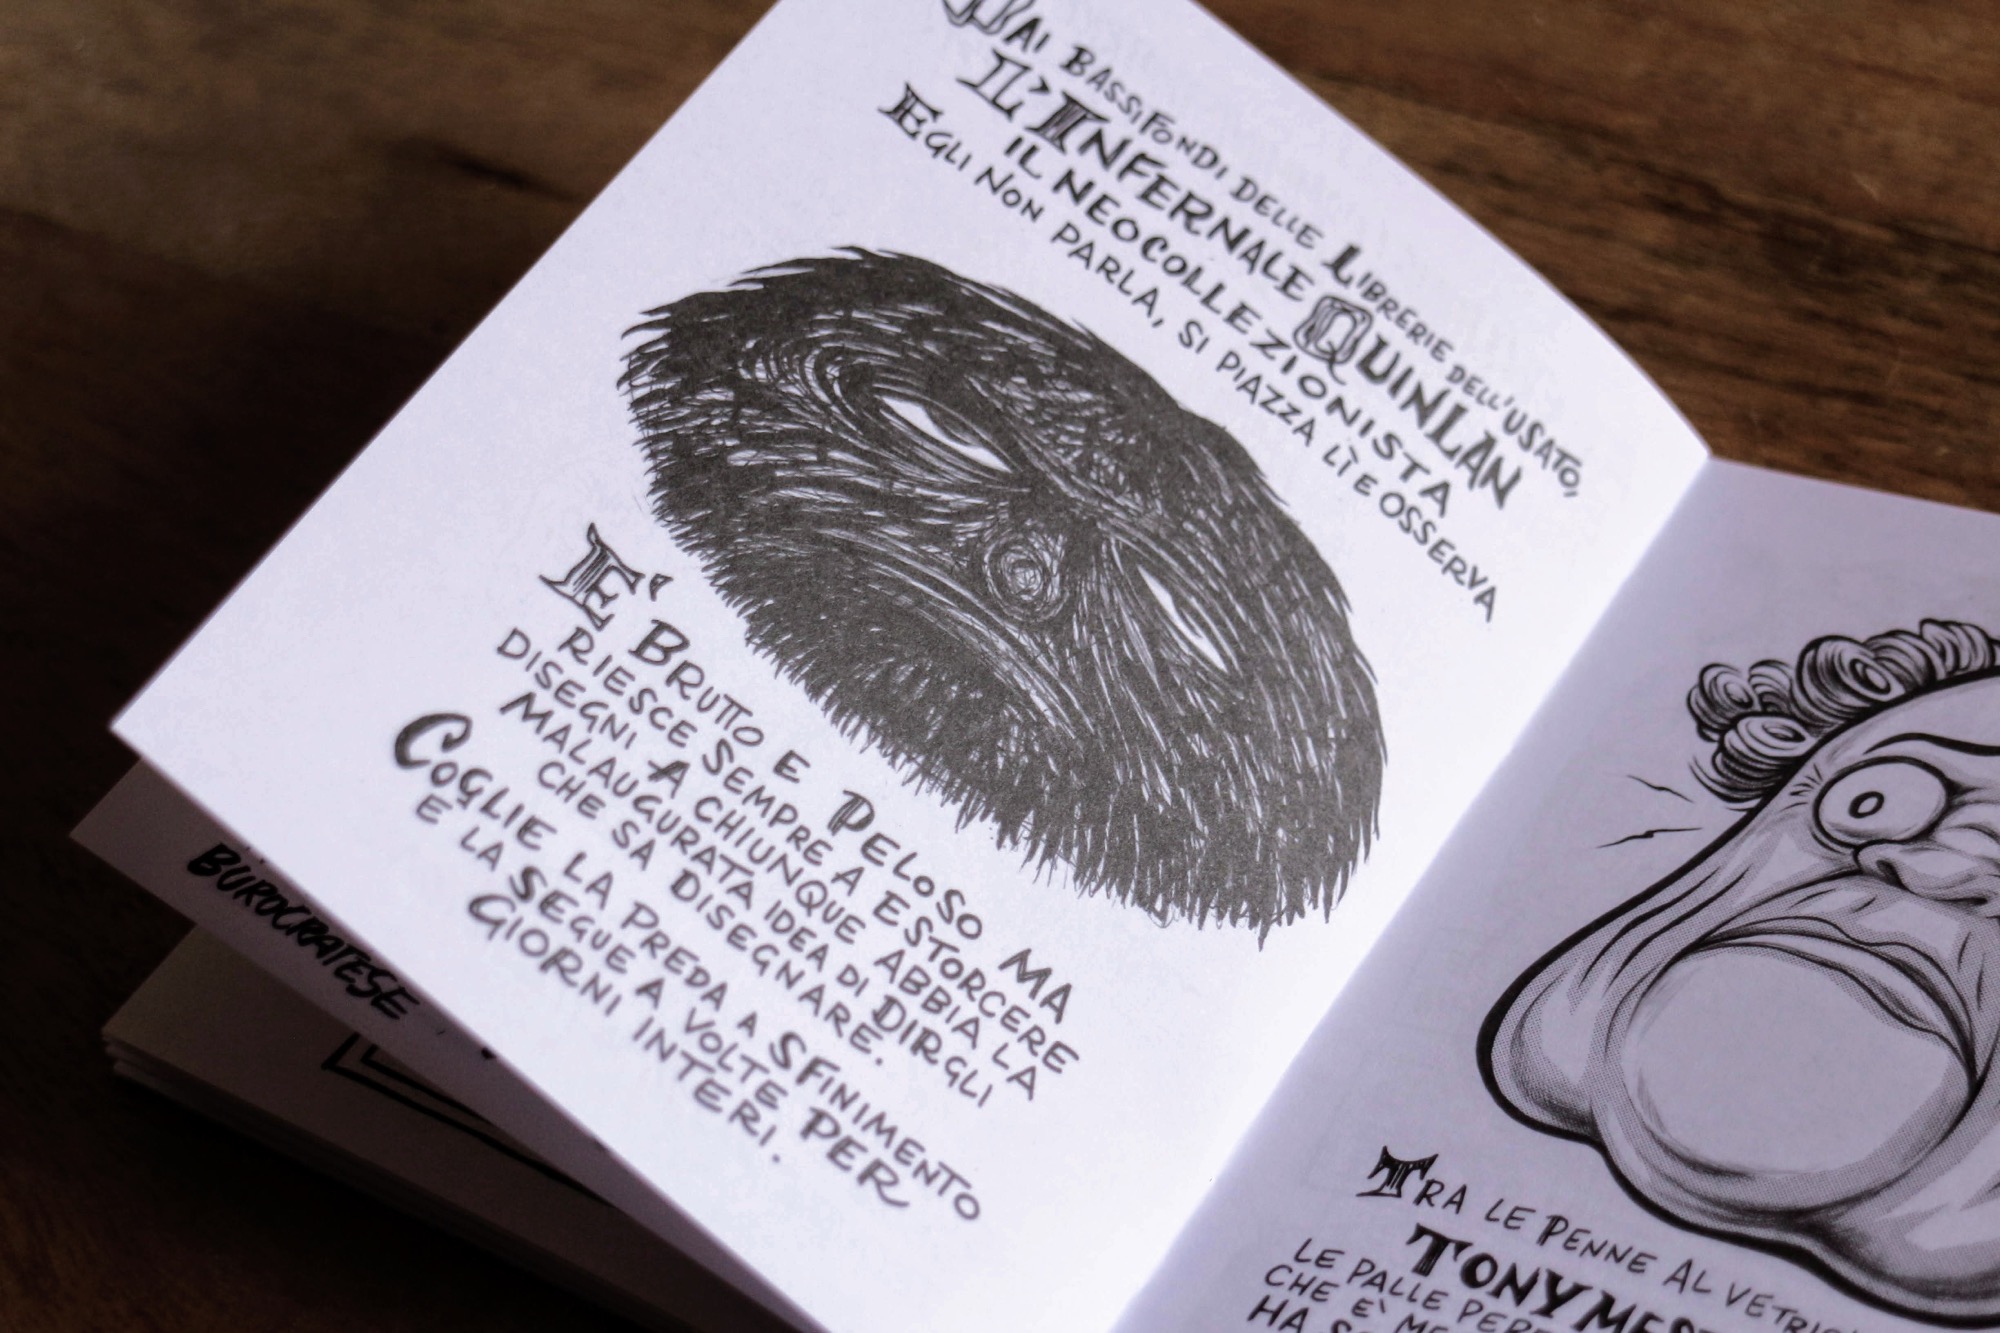 Dai bassifondi delle Librerie dell'usato,
L'Infernale Quinlan
il neocollezionista
Egli non parla, si piazza lì e osserva
E' Brutto e Peloso ma
riesce sempre a estorcere
disegni a chiunque abbia la
malaugurata idea di dirgli
che sa disegnare.
Coglie la preda a sfinimento
e la segue a volte per
giorni interi.
BUROCRATESE
Tra le penne al
TONY
LE PALLE
CHE E'
HA